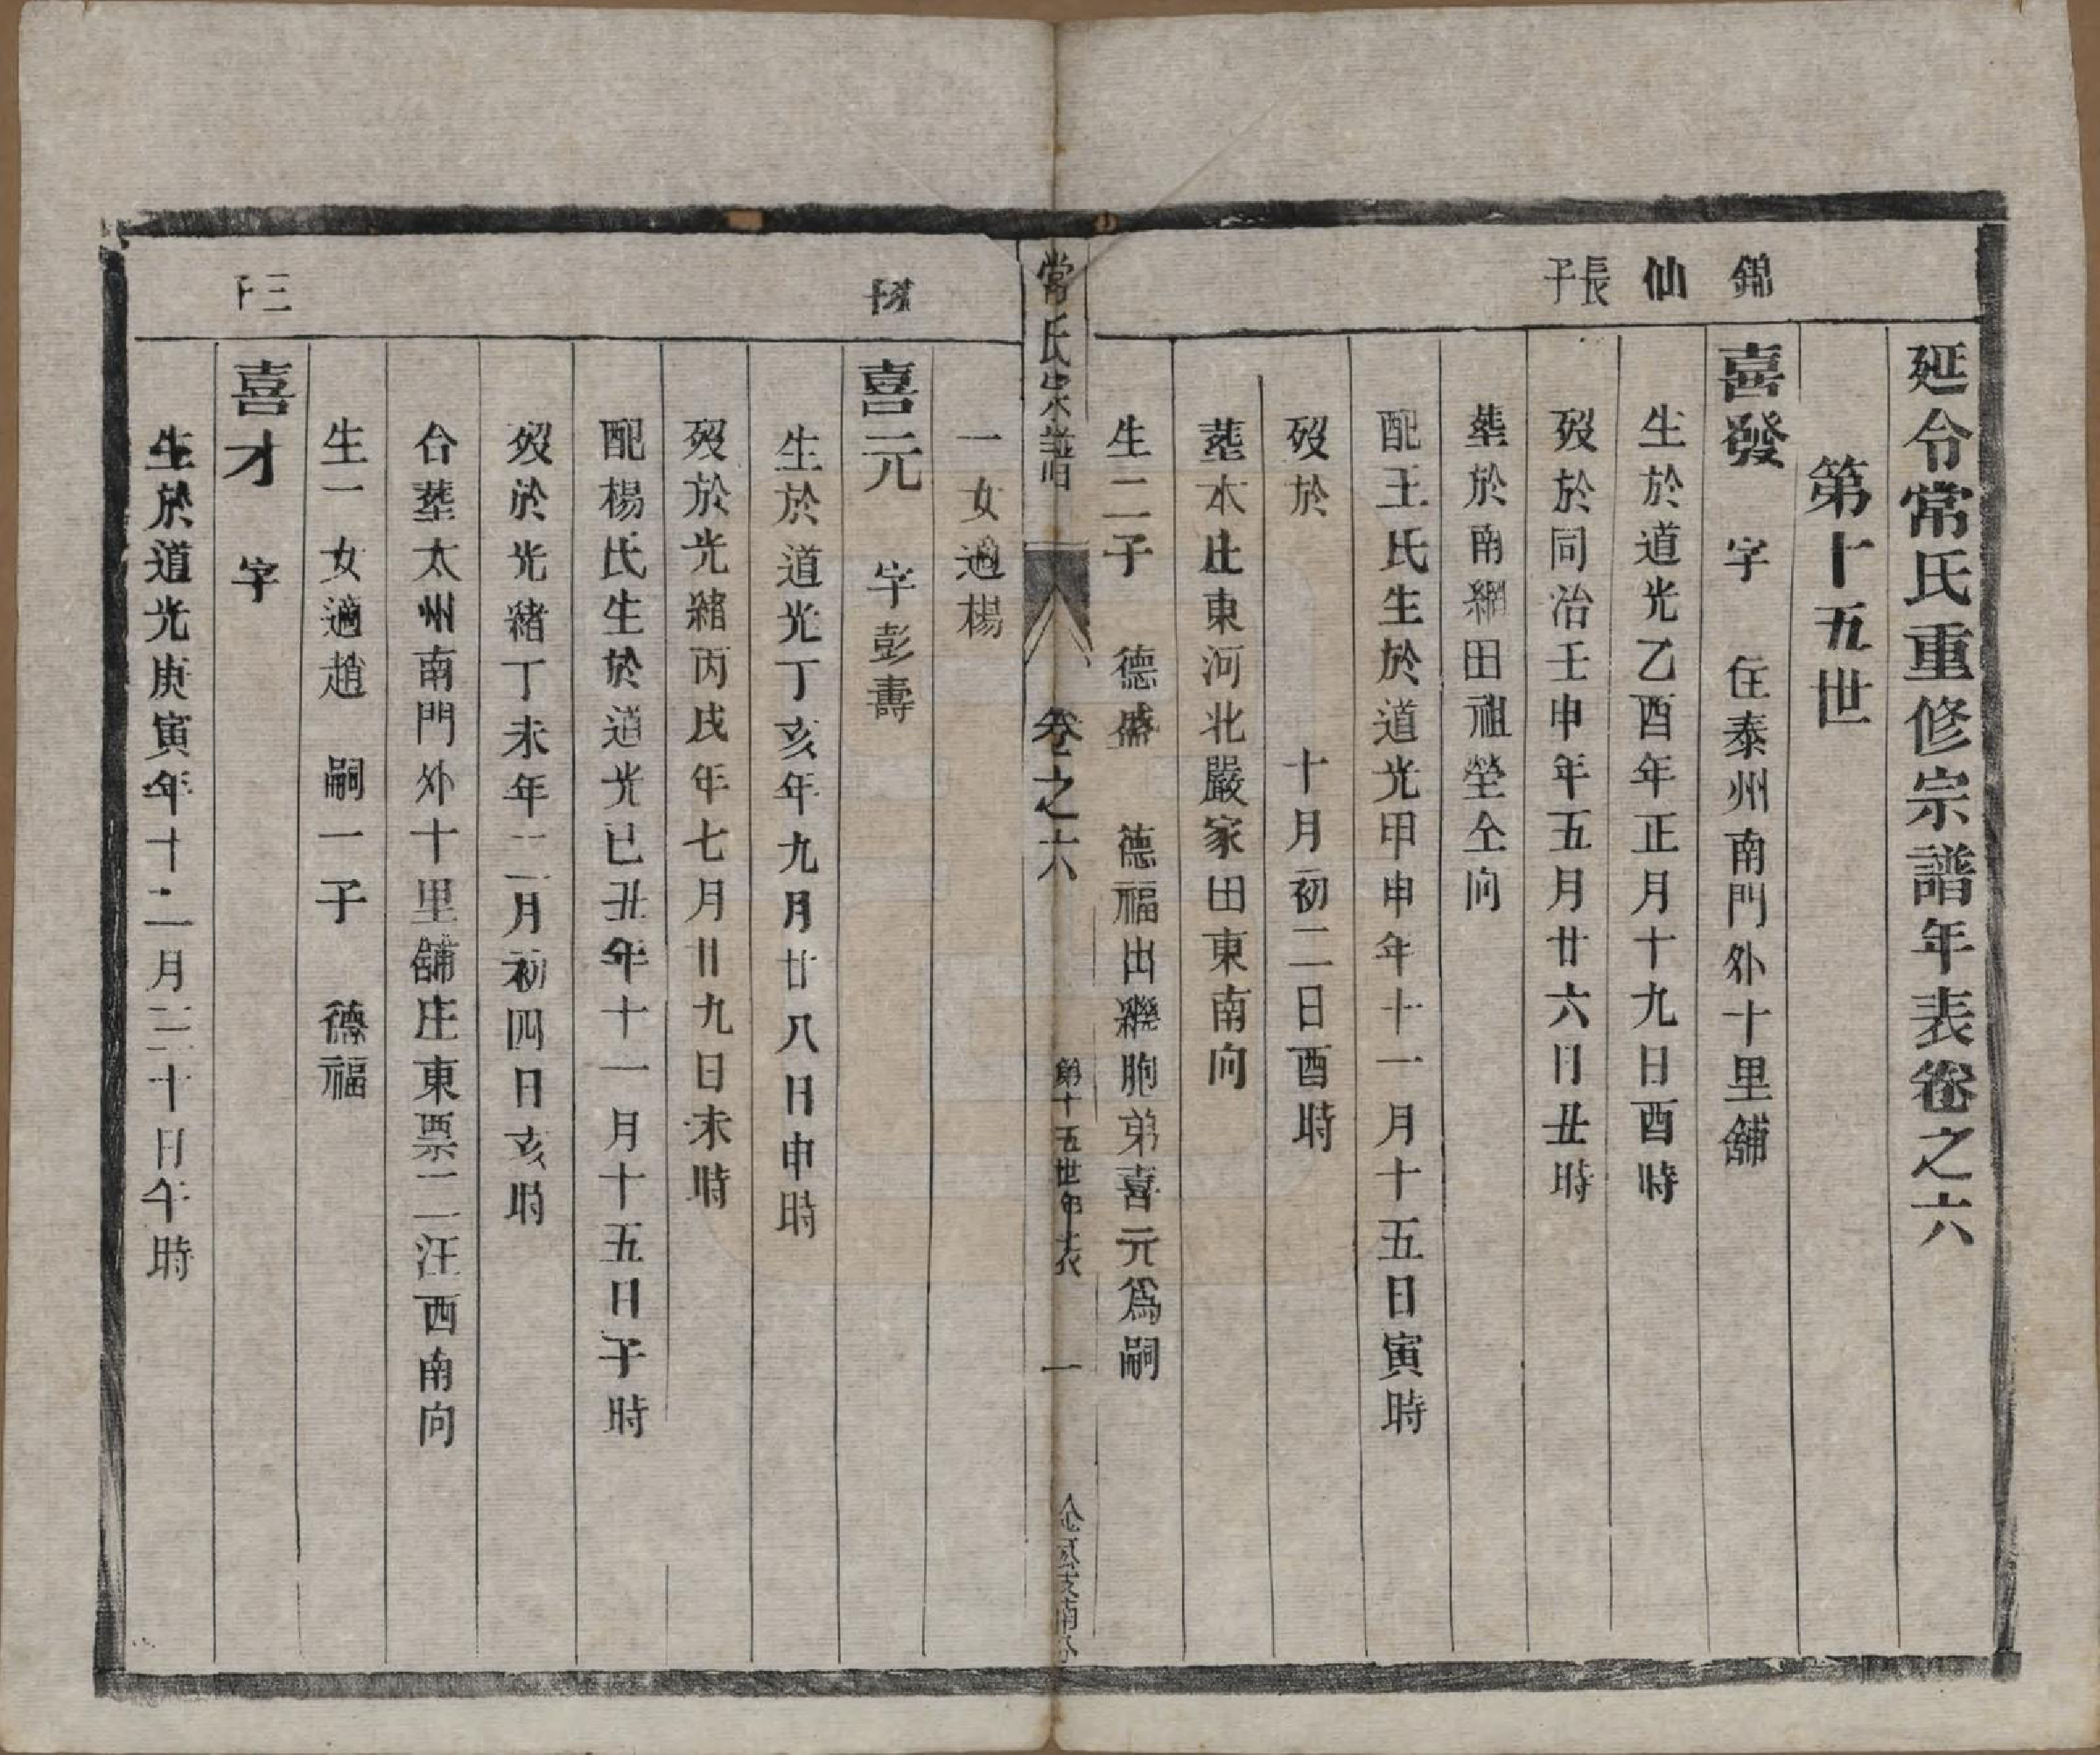 延令常氏重修宗譜年表卷之六
第十五世
錦仙長子
喜發 字 住泰州南門外十里舖
生於道光乙酉年正月十九日酉時
歿於同治壬申年五月廿六日丑時
塟於南網田祖塋仝向
配王氏生於道光甲申年十一月十五日寅時
歿於 十月初二日酉時
塟本庄東河北嚴家田東南向
生二子 德盛 德福出繼胞弟喜元為嗣
常氏宗譜 卷之六 第十五世年表 一
一女適楊
喜元 字彭壽
生於道光丁亥年九月廿八日申時
歿於光緒丙戌年七月廿九日未時
配楊氏生於道光已丑年十一月十五日子時
歿於光緒丁未年二月初四日亥時
合塟太州南門外十里舖庄東票二汪西南向
生一女適趙 嗣一子 德福
三子
喜才 字
生於道光庚寅年十二月三十日午時